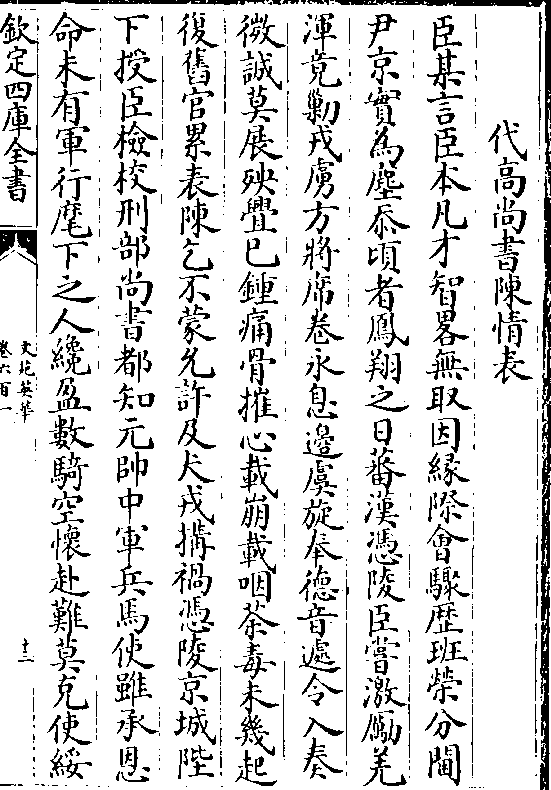 代高尚書陳情表
臣某言臣本凡才智畧無取因縁際會驟歴班榮分閫
尹京實為塵忝頃者鳳翔之日蕃漢憑陵臣嘗激勵羌
渾竟勦戎虜方將席卷永息邊虞旋奉德音遽令入奏
微誠莫展殃舋已鍾痛骨摧心載崩載咽荼毒未幾起
復舊官累表陳乞不蒙允許及犬戎搆禍憑陵京城陛
下授臣檢校刑部尚書都知元帥中軍兵馬使雖承恩
命未有軍行麾下之人纔盈數騎空懐赴難莫克使綏
欽定四庫全書
文苑英華
卷六百一
十二